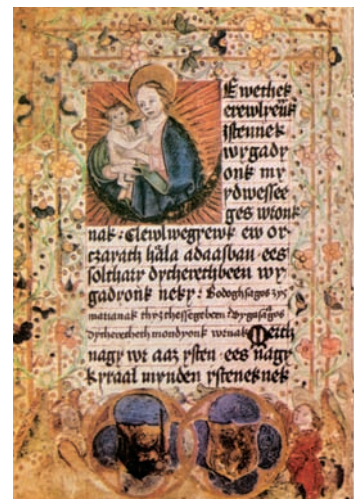 Ewethek
erewlyeuk
ystennek
wygady
onk my
ydwessee
ges wronk
nak : Elewlwegyewk ew or-
czayath hala adaasban ees
solthaar dycherethbeen wy
gadyonk neky : Bodoghsagos zyz
marianak thyztessegebeen
dycheretheth mondyonk wrnak Merth
nagy wr aaz ysten ees nagy
kyraal mynden ysteneknek